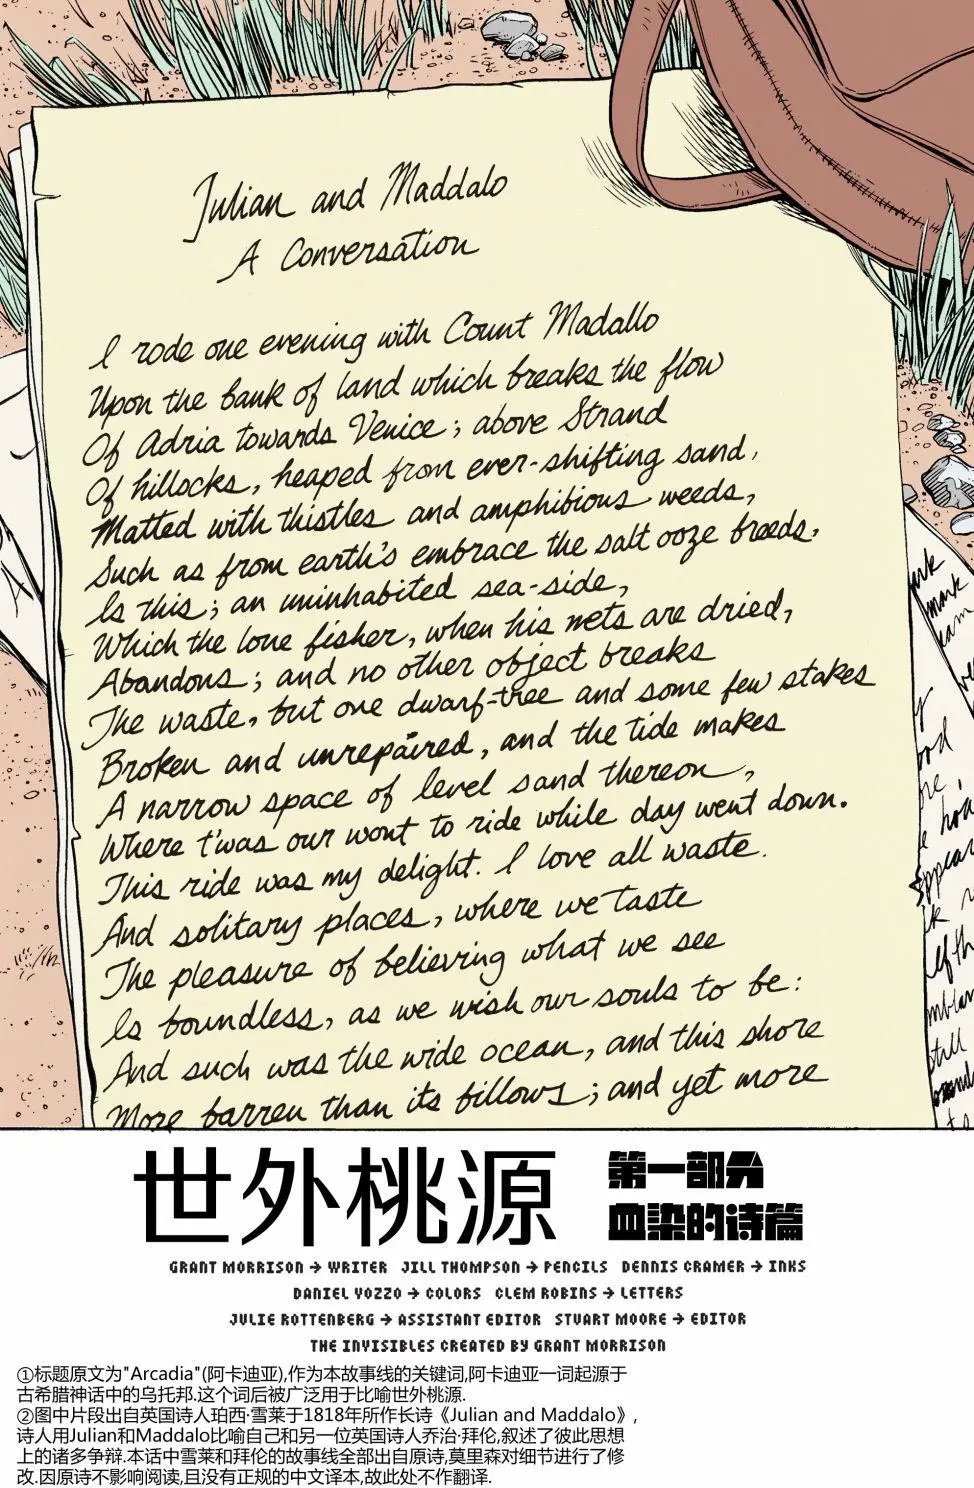 Julian and Maddalo
A Conversation
I rode one evening with Count Madallo
Upon the bank of land which breaks the flow
Of Adria towards Venice; above Strand
Of hillocks, heaped from ever-shifting sand,
Matted with thistles and amphibious weeds,
Such as from earth's embrace the salt ooze breeds,
Is this; an uninhabited sea-side,
Which the lone fisher, when his nets are dried,
Abandons; and no other object breaks
The waste, but one dwarf-tree and some few stakes
Broken and unrepaired, and the tide makes
A narrow space of level sand thereon,
Where t'was our wont to ride while day went down.
This ride was my delight. I love all waste.
And solitary places, where we taste
The pleasure of believing what we see
Is boundless, as we wish our souls to be:
And such was the wide ocean, and this shore
More barren than its billows; and yet more
世外桃源
第一部分
血染的诗篇
GRANT MORRISON → WRITER JILL THOMPSON → PENCILS DENNIS CRAMER → INKS
DANIEL VOZZO → COLORS CLEM ROBINS → LETTERS
JULIE ROTTENBERG → ASSISTANT EDITOR STUART MOORE → EDITOR
THE INVISIBLES CREATED BY GRANT MORRISON
①标题原文为"Arcadia"(阿卡迪亚),作为本故事线的关键词,阿卡迪亚一词起源于
古希腊神话中的乌托邦.这个词后被广泛用于比喻世外桃源.
②图中片段出自英国诗人珀西·雪莱于1818年所作长诗《Julian and Maddalo》,
诗人用Julian和Maddalo比喻自己和另一位英国诗人乔治·拜伦,叙述了彼此思想
上的诸多争辩.本话中雪莱和拜伦的故事线全部出自原诗,莫里森对细节进行了修
改.因原诗不影响阅读,且没有正规的中文译本,故此处不作翻译.